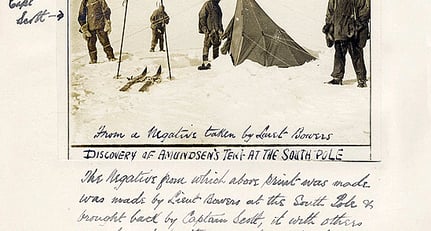 Capt
Scott →
From a Negative taken by Lieut Bowers
DISCOVERY OF AMUNDSEN'S TENT AT THE SOUTH POLE
The Negative from which above print was made
was made by Lieut Bowers at the South Pole &
brought back by Captain Scott, it with others